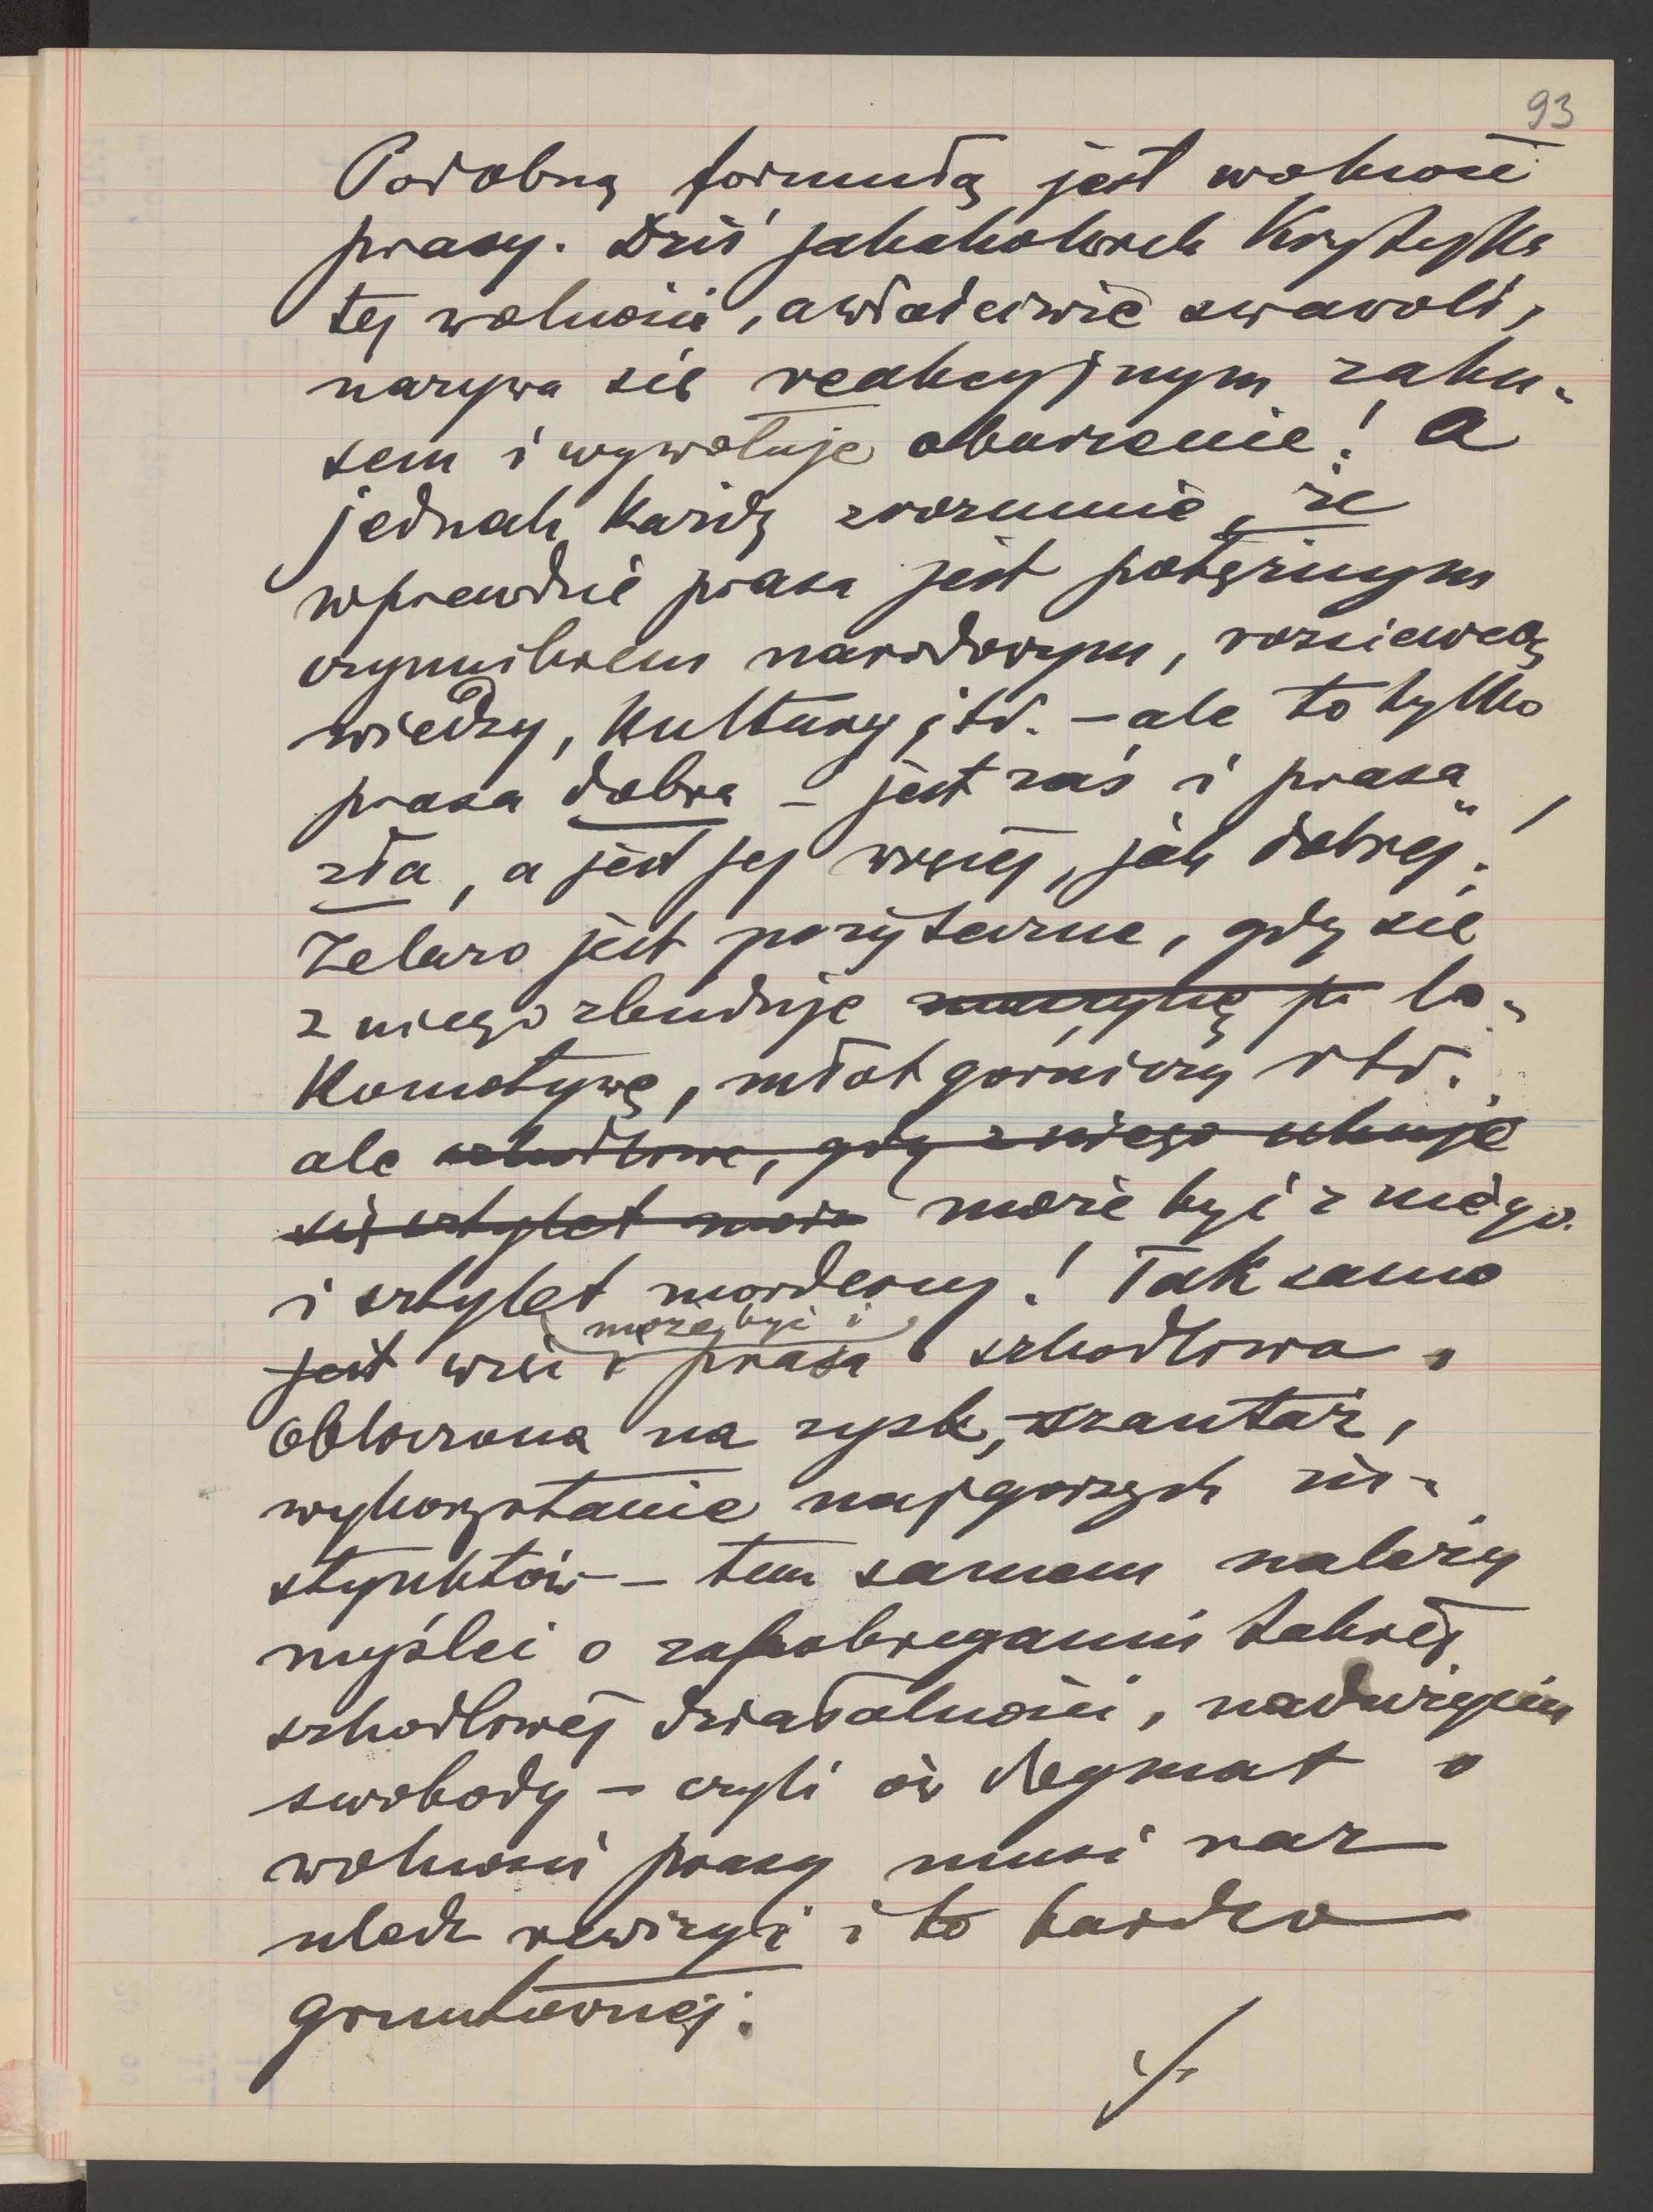 93
Podobną formułą jest wolność
prasy. Dziś jakakolwiek krytyka
tej wolności, a właściwie swawoli,
nazywa się reakcyjnym zaku-
sem i wywołuje oburzenie! A
jednak każdy zrozumie, że
wprawdzie prasa jest potężnym
czynnikiem narodowym, rozsiewcą
wiedzy, kultury itd. – ale to tylko
prasa dobra – jest zaś i prasa
zła, a jest jej więcej, jak dobrej!
Żelazo jest pożyteczne, gdy się
z niego zbuduje lo-
komotywę, młot górniczy itd.
ale szkodliwe, gdy z niego ukuje
się sztylet może być z niego
i sztylet morderczy! Tak samo
może być i
jest więc i prasa szkodliwa,
obliczona na zysk, szantaż,
wykorzystanie najgorszych in-
stynktów – tem samem należy
myśleć o zapobieganiu takiej
szkodliwej działalności, nadużyciu
swobody – czyli ów dogmat o
wolności prasy musi raz
uledz rewizyi i to bardzo
gruntownej.